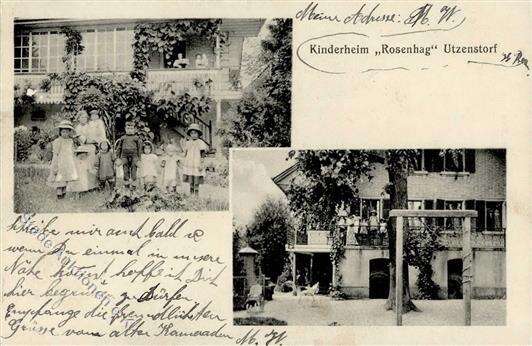 Meine Adresse: M. W.
Kinderheim „Rosenhag“ Utzenstorf
Schreibe mir auch bald &
wenn Du einmal in unsere
Nähe kommst hoffe ich Dich
hier begrüssen zu dürfen.
Empfange die freundlichsten
Grüsse vom alten Kameraden M. W.